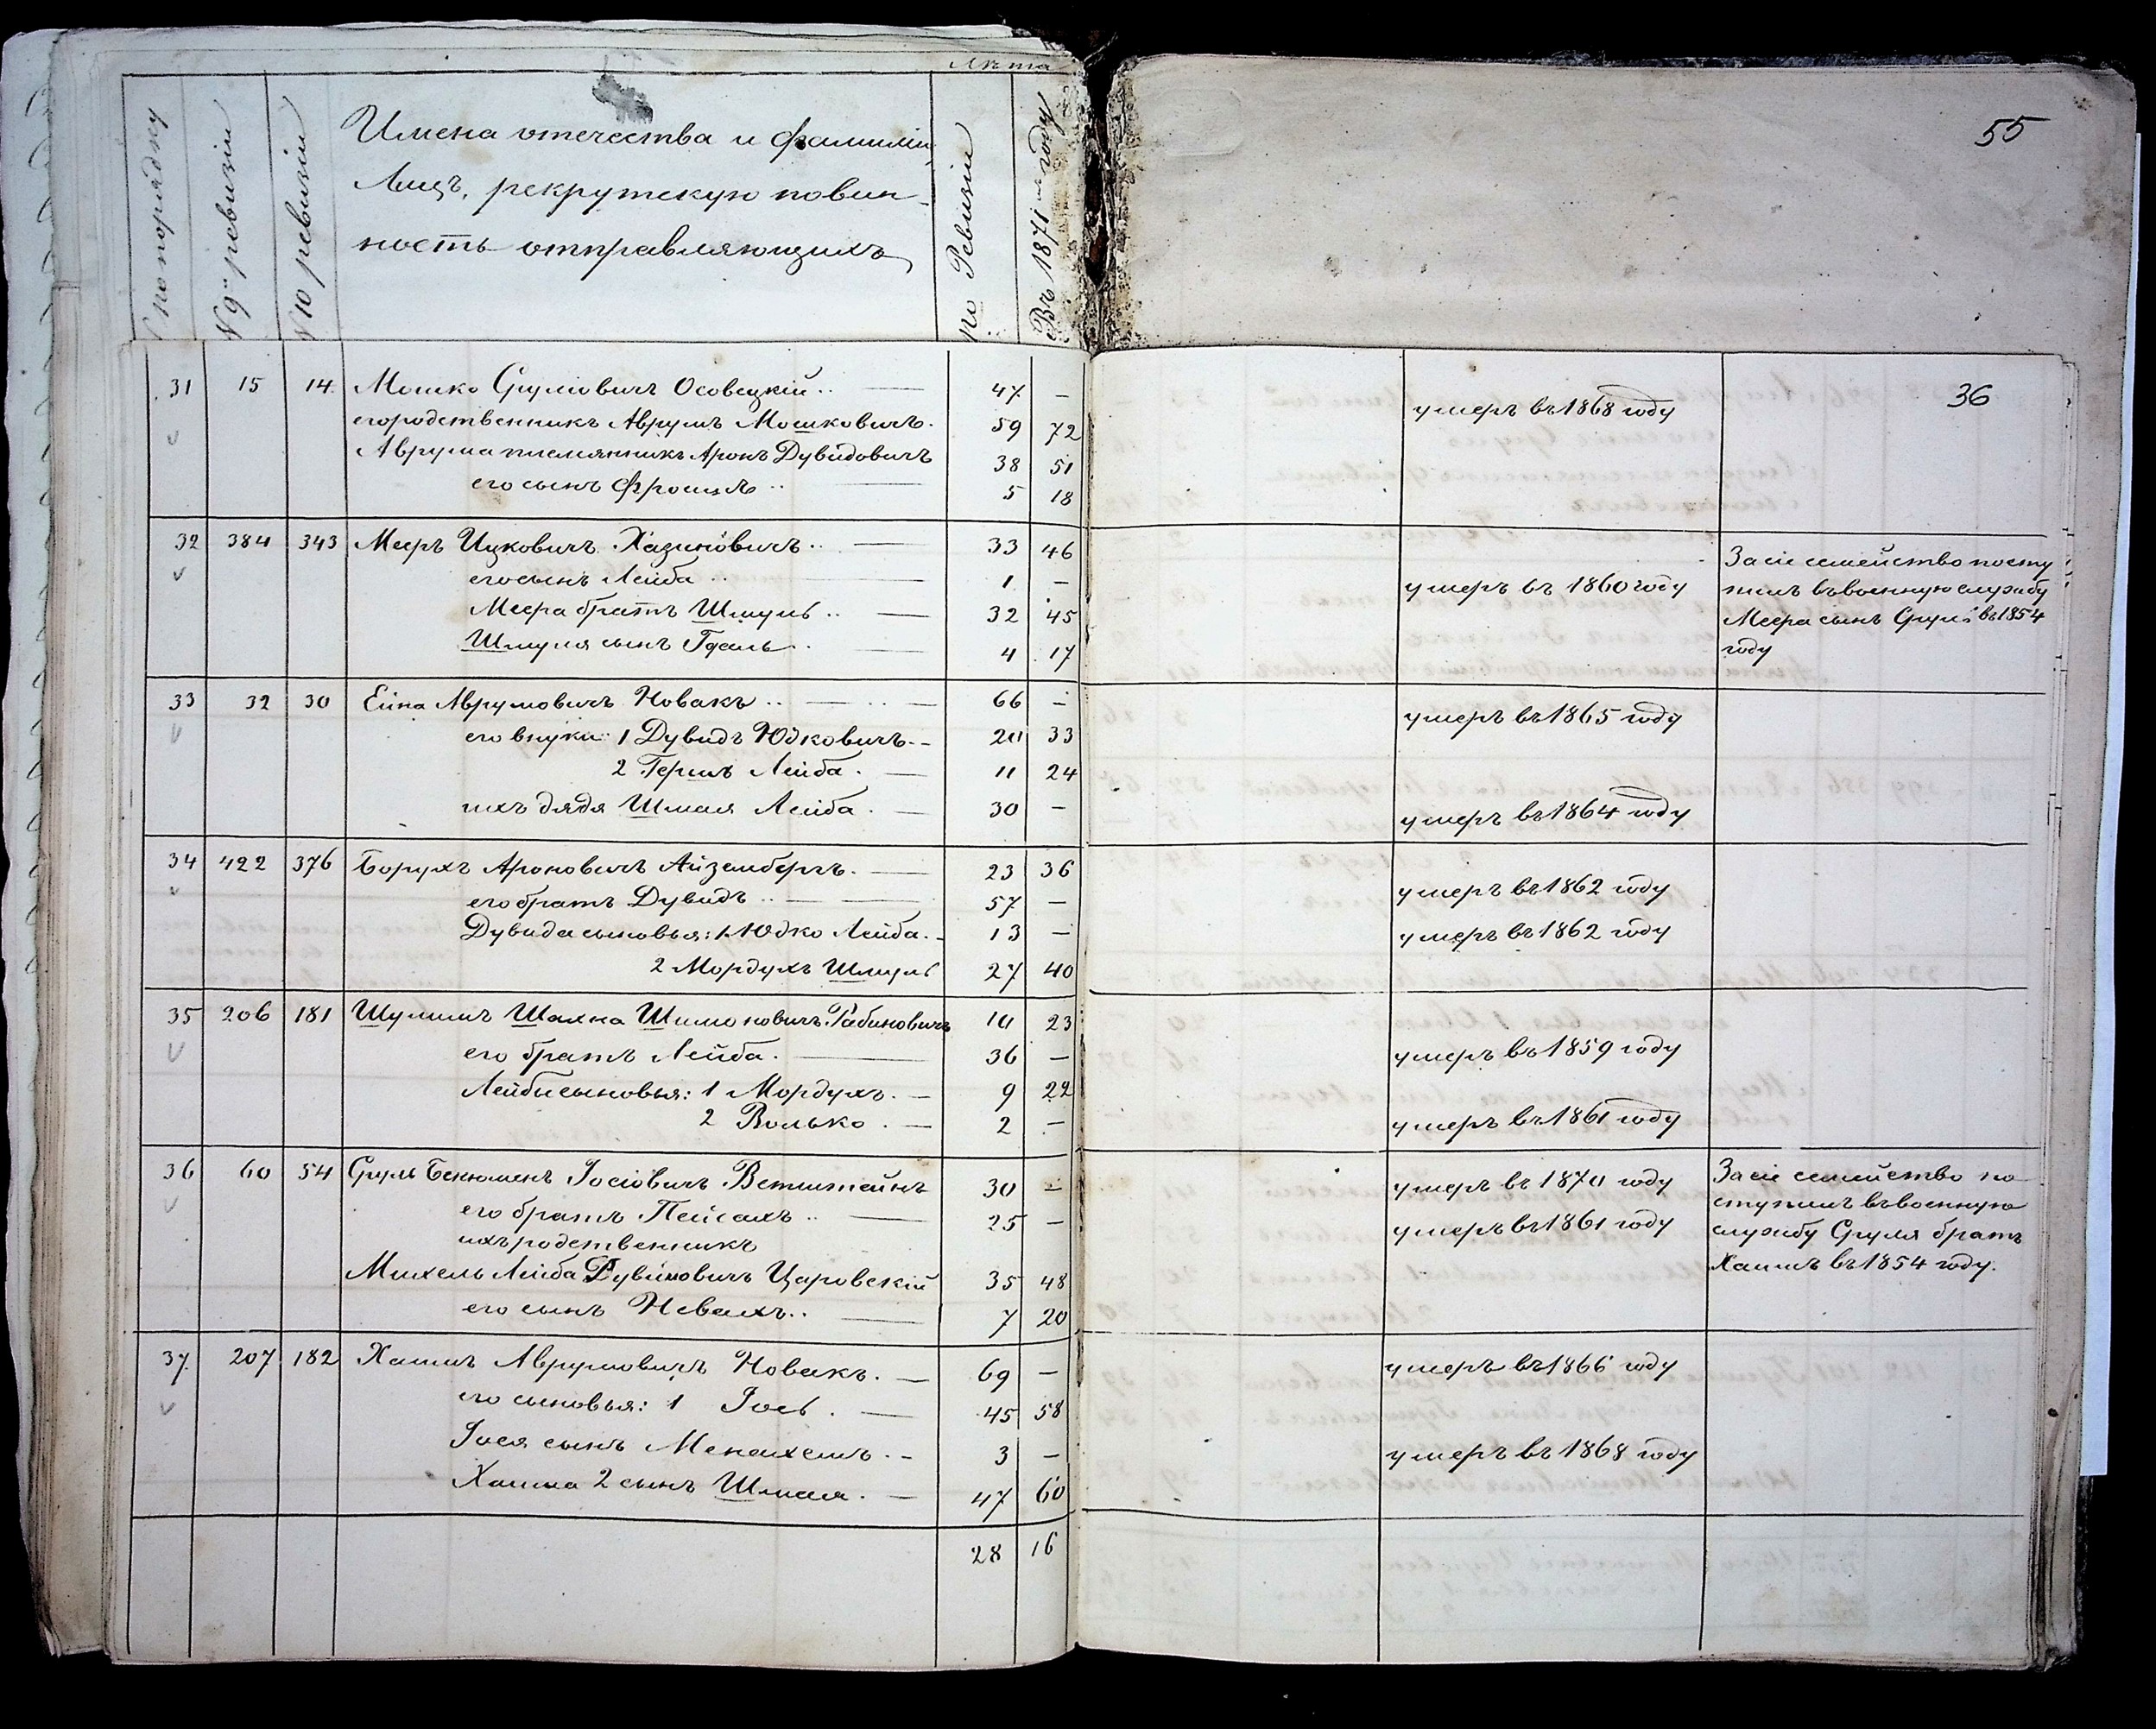 Лѣта
№ по порядку
№ 9й ревизіи
№ 10 ревизіи
Имена отечества и фамиліи
Лицъ, рекрутскую повин-
ность отправляющихъ
по Ревизіи
Въ 1871м году
55
36
31 15 14 Мошко Сруліовичъ Осовецкій .. — 47 — умеръ въ 1868 году
его родственникъ Аврумъ Мошковичъ. 59 72
Аврума племянникъ Аронъ Дувидовичъ 38 51
его сынъ Фроимъ .. — 5 18
32 384 343 Мееръ Ицковичъ Хазиновичъ .. — 33 46
его сынъ Лейба .. — 1 — умеръ въ 1860 году
Меера братъ Шмуль .. — 32 45
Шмуля сынъ Гдаль . — 4 17
За сіе семейство посту
пилъ въ военную службу
Меера сынъ Сруль въ 1854
году
33 32 30 Ейна Аврумовичъ Новакъ .. — .. — 66 — умеръ въ 1865 году
его внуки: 1 Дувидъ Юдковичъ. - 20 33
2 Гершъ Лейба . — 11 24
ихъ дядя Шмая Лейба . — 30 — умеръ въ 1864 году
34 422 376 Борухъ Ароновичъ Айзембергъ. — 23 36
его братъ Дувидъ .. — 57 — умеръ въ 1862 году
Дувида сыновья: 1 Юдко Лейба. - 13 — умеръ въ 1862 году
2 Мордухъ Шмуль 27 40
35 206 181 Шулимъ Шахна Шимоновичъ Рабиновичъ 10 23
его братъ Лейба . — 36 — умеръ въ 1859 году
Лейбы сыновья: 1 Мордухъ. — 9 22
2 Волько . — 2 — умеръ въ 1861 году
36 60 54 Сруль Бенюменъ Іосіовичъ Ветштейнъ 30 — умеръ въ 1870 году
его братъ Пейсахъ .. — 25 — умеръ въ 1861 году
ихъ родственникъ
Михель Лейба Дувидовичъ Царовскій 35 48
его сынъ Невахъ .. — 7 20
За сіе семейство по
ступилъ въ военную
службу Сруля братъ
Хаимъ въ 1854 году.
37 207 182 Хаимъ Аврумовичъ Новакъ. — 69 — умеръ въ 1866 году
его сыновья: 1 Іось . — 45 58
Іося сынъ Менахемъ . - 3 — умеръ въ 1868 году
Хаима 2 сынъ Шмая . — 47 60
28 16